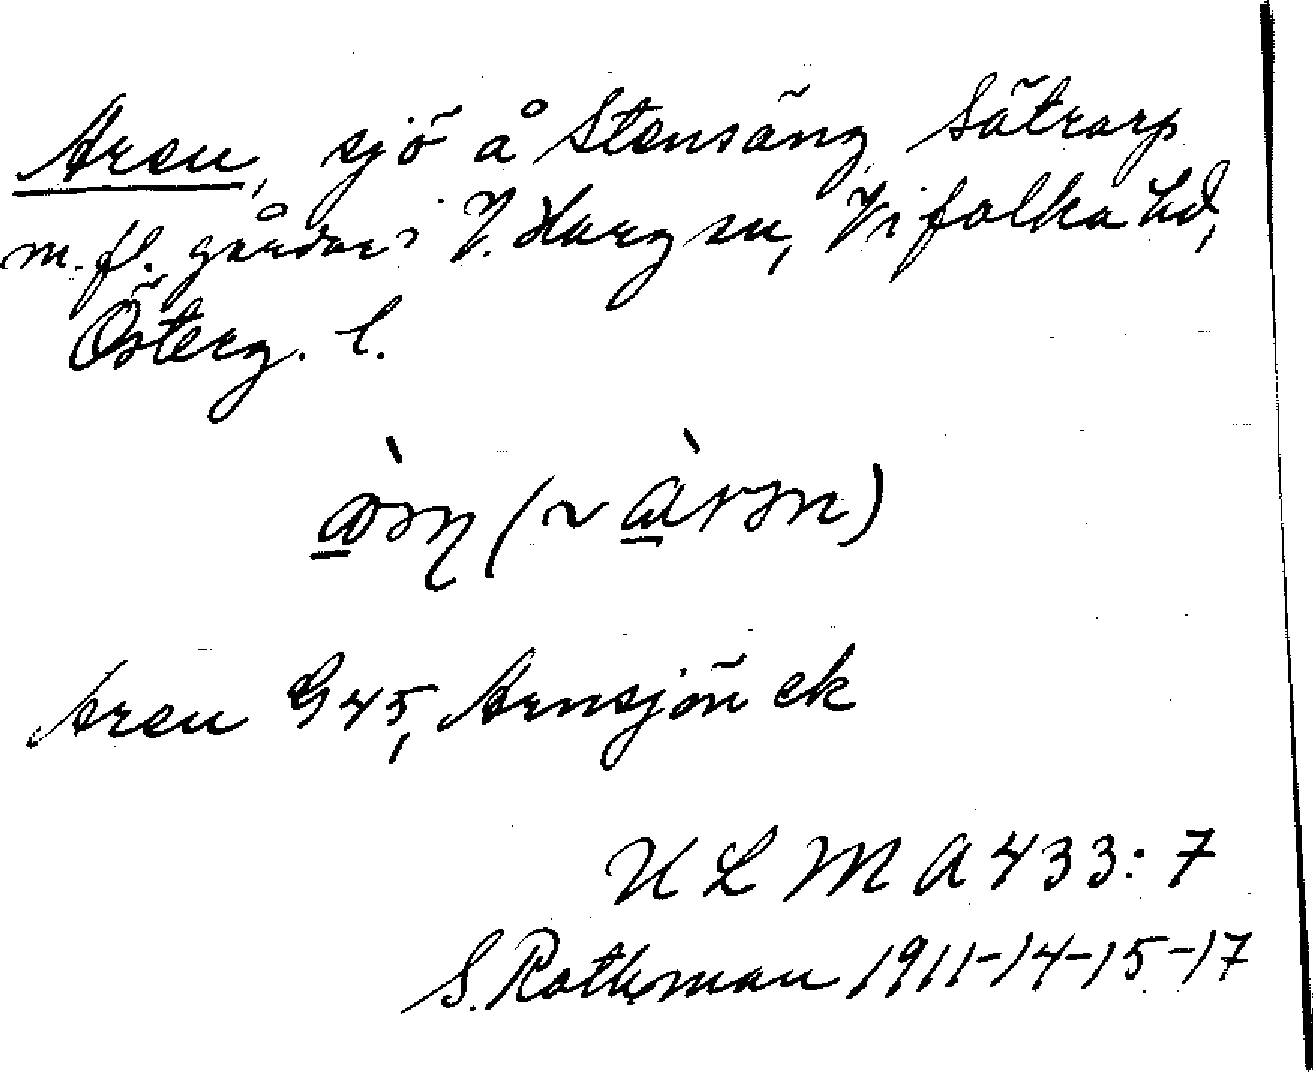 Aren, sjö å Stensäng, Sätrarp
m. fl. gårdar i V. Harg sn, Vifolka hd,
Österg. l.
Aren G 45, Arnsjön ek
ULMA 433:7
S. Rothman 1911-14-15-17